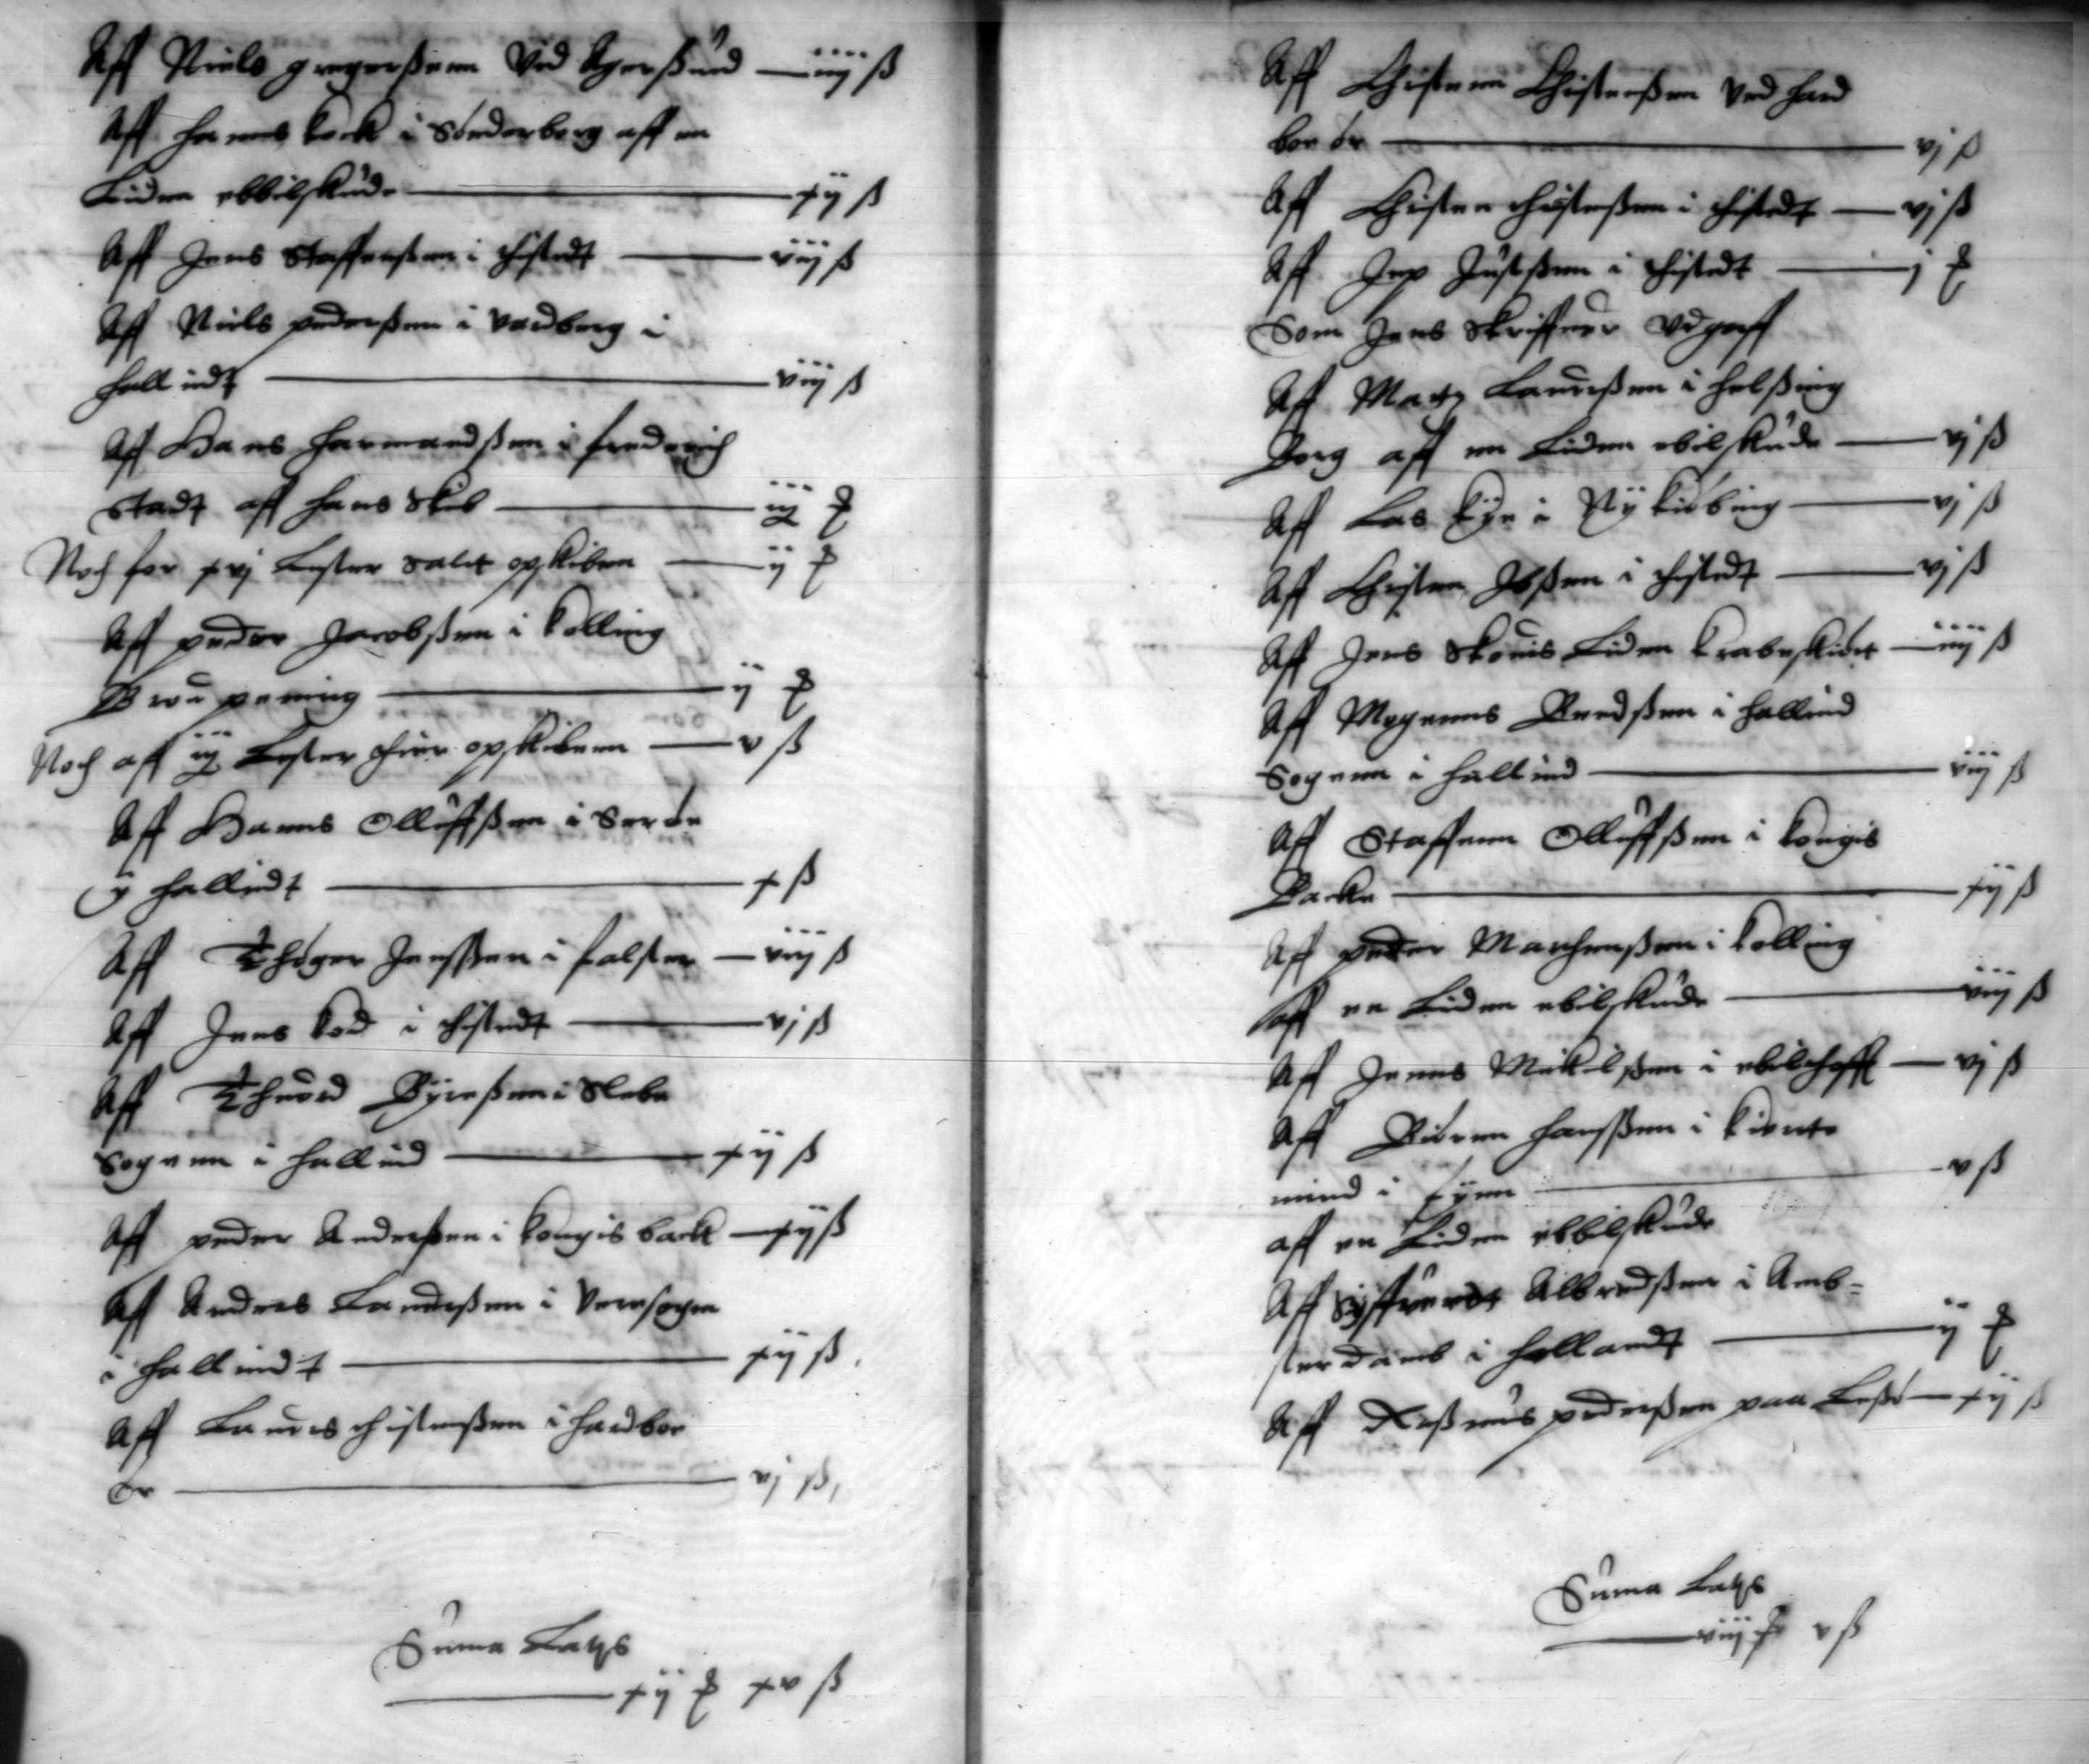 Aff Niels gregerßenn Ved Agerßund — iiij ß
Aff Hanns kock i Sønderborg aff en
Liden ebbilskude — xij ß
Aff Jens Staffensen i Thistedt — viij ß
Aff Niels pederßen i Vardberg i
Hallindt — viij ß
Aff Hans Harmandßen i frederich
stadt aff hans skib — iij
Noch for xvj Lester salt opskiben — ij
Aff peder Jacobßen i kolling
Brou pening — ij
Noch aff Lester opskibenn — v ß
Aff Hanns Olluffßen i
ij Hallindt — x ß
Aff Thøger Jenßen i falster — viij ß
Aff Jens kod i Thistedt — vj ß
Aff Thuord Byreßen i Slebe
Sogenn i Hallind — xij ß
Aff peder Anderßen i kongis back — xij ß
Aff Anders Lauridßen i Veresogen
i Hallindt — xij ß
Aff Lauris Christenßen i Hardbor
ør — vj ß
Suma Latus
— xij xv ß
Aff Christenn Christenßen Ved Hard
bor ør — vj ß
Aff Christen Christenßen i Thistedt — vj ß
Aff Jep Justßen i Thistedt — j
Som Jens Skriffuer Vdgaff
Aff Matz Laurißen i Helßing
Borg aff en Liden ebilskude — vj ß
Aff Las i Nykiøbing — vj ß
Aff Christen Ibßen i Thistedt — vj ß
Aff Jens Skouis Liden krabeskudt — iiij ß
Aff Mogenns Bendßen i Hallind
Sogenn i Hallind — viij ß
Aff Staffenn Olluffßen i kongis
Backe — xij ß
Aff peder i kolling
aff en Liden ebilskude — viij ß
Aff Jenns Mikilßen i ebilthofft — vj ß
Aff Biørnn Hanßen i kierte
mind i fynn — v ß
aff en Liden ebbilskude
Aff Syffuerdt Albredßen i Amb-
sterdamb i Hollandt — ij
Aff Raßmus pederßen paa Leßø — xij ß
Suma Latus
— viij v ß